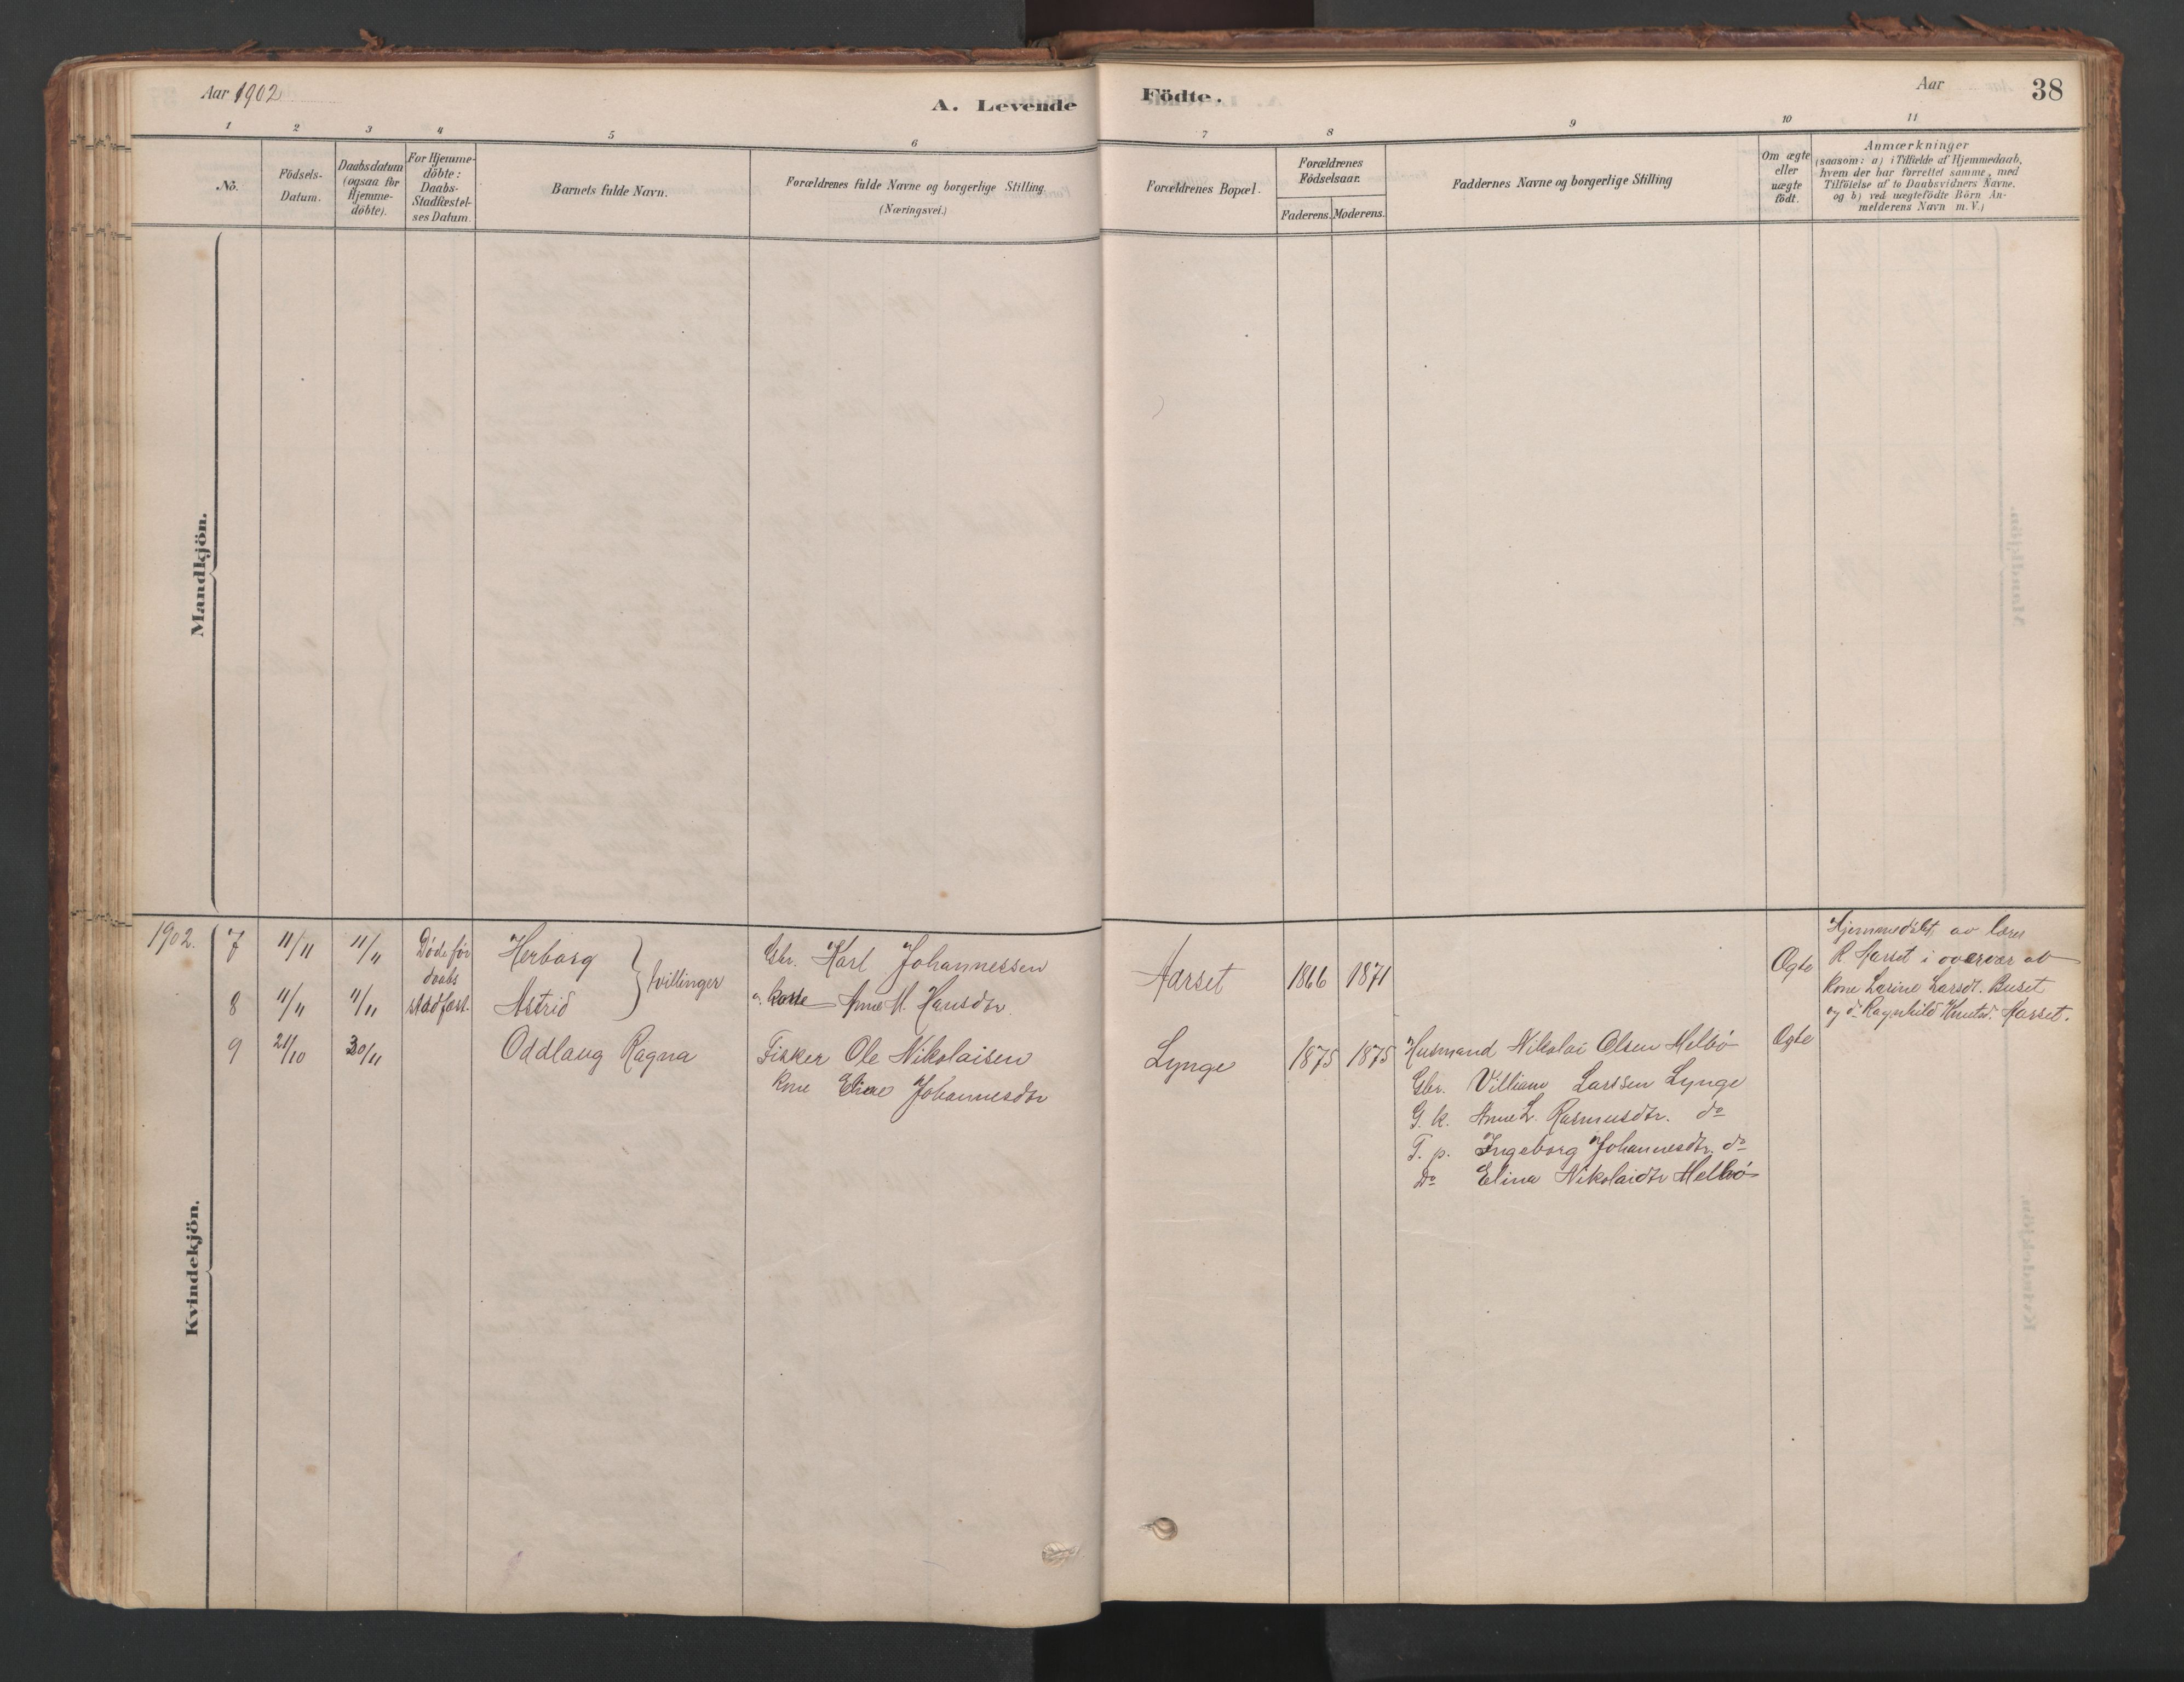 Aar 1902
A. Levende
Födte.
Aar
38
1 2 3 4 5 6 7 8 9 10 11
No.
Födsels-
Datum.
Daabsdatum
(ogsaa for
Hjemme-
döbte).
For Hjemme-
döbte:
Daabs-
Stadfæstel-
ses Datum.
Barnets fulde Navn.
Forældrenes fulde Navne og borgerlige Stilling
(Næringsvei.)
Forældrenes Bopæl.
Forældrenes
Födselsaar.
Faderens. Moderens.
Faddernes Navne og borgerlige Stilling
Om ægte
eller
uægte
födt.
Anmærkninger
(saasom: a) i Tilfælde af Hjemmedaab,
hvem der har forrettet samme, med
Tilföielse af to Daabsvidners Navne,
og b) ved uægtefödte Börn An-
melderens Navn m. V.)
Mandkjön.
Kvindekjön.
1902.
7 11/11 11/11 Døde før Herborg
daabs
8 11/11 11/11 stadfæst. Astrid
tvillinger
Gbr. Karl Johannessen
Anne M. Hansdtr.
Aarset 1866 1871
Ægte
Hjemmedøbt av lærer
R. Aarset i overvær at
kone Larine Larsdt. Buset
og do Ragnhild Knutsd. Aarset.
9 21/10 30/11 Oddlaug Ragna
Fisker Ole Nikolaisen
kone Eline Johannesdtr
Lynge 1875 1875
Husmand Nikolai Olsen Melbö
Gbr. Villiam Larssen Lynge
G. k. Anne L. Rasmusdtr. do
T. p. Ingeborg Johannesdtr. do
Do Elina Nikolaidtr Melbö
Ægte